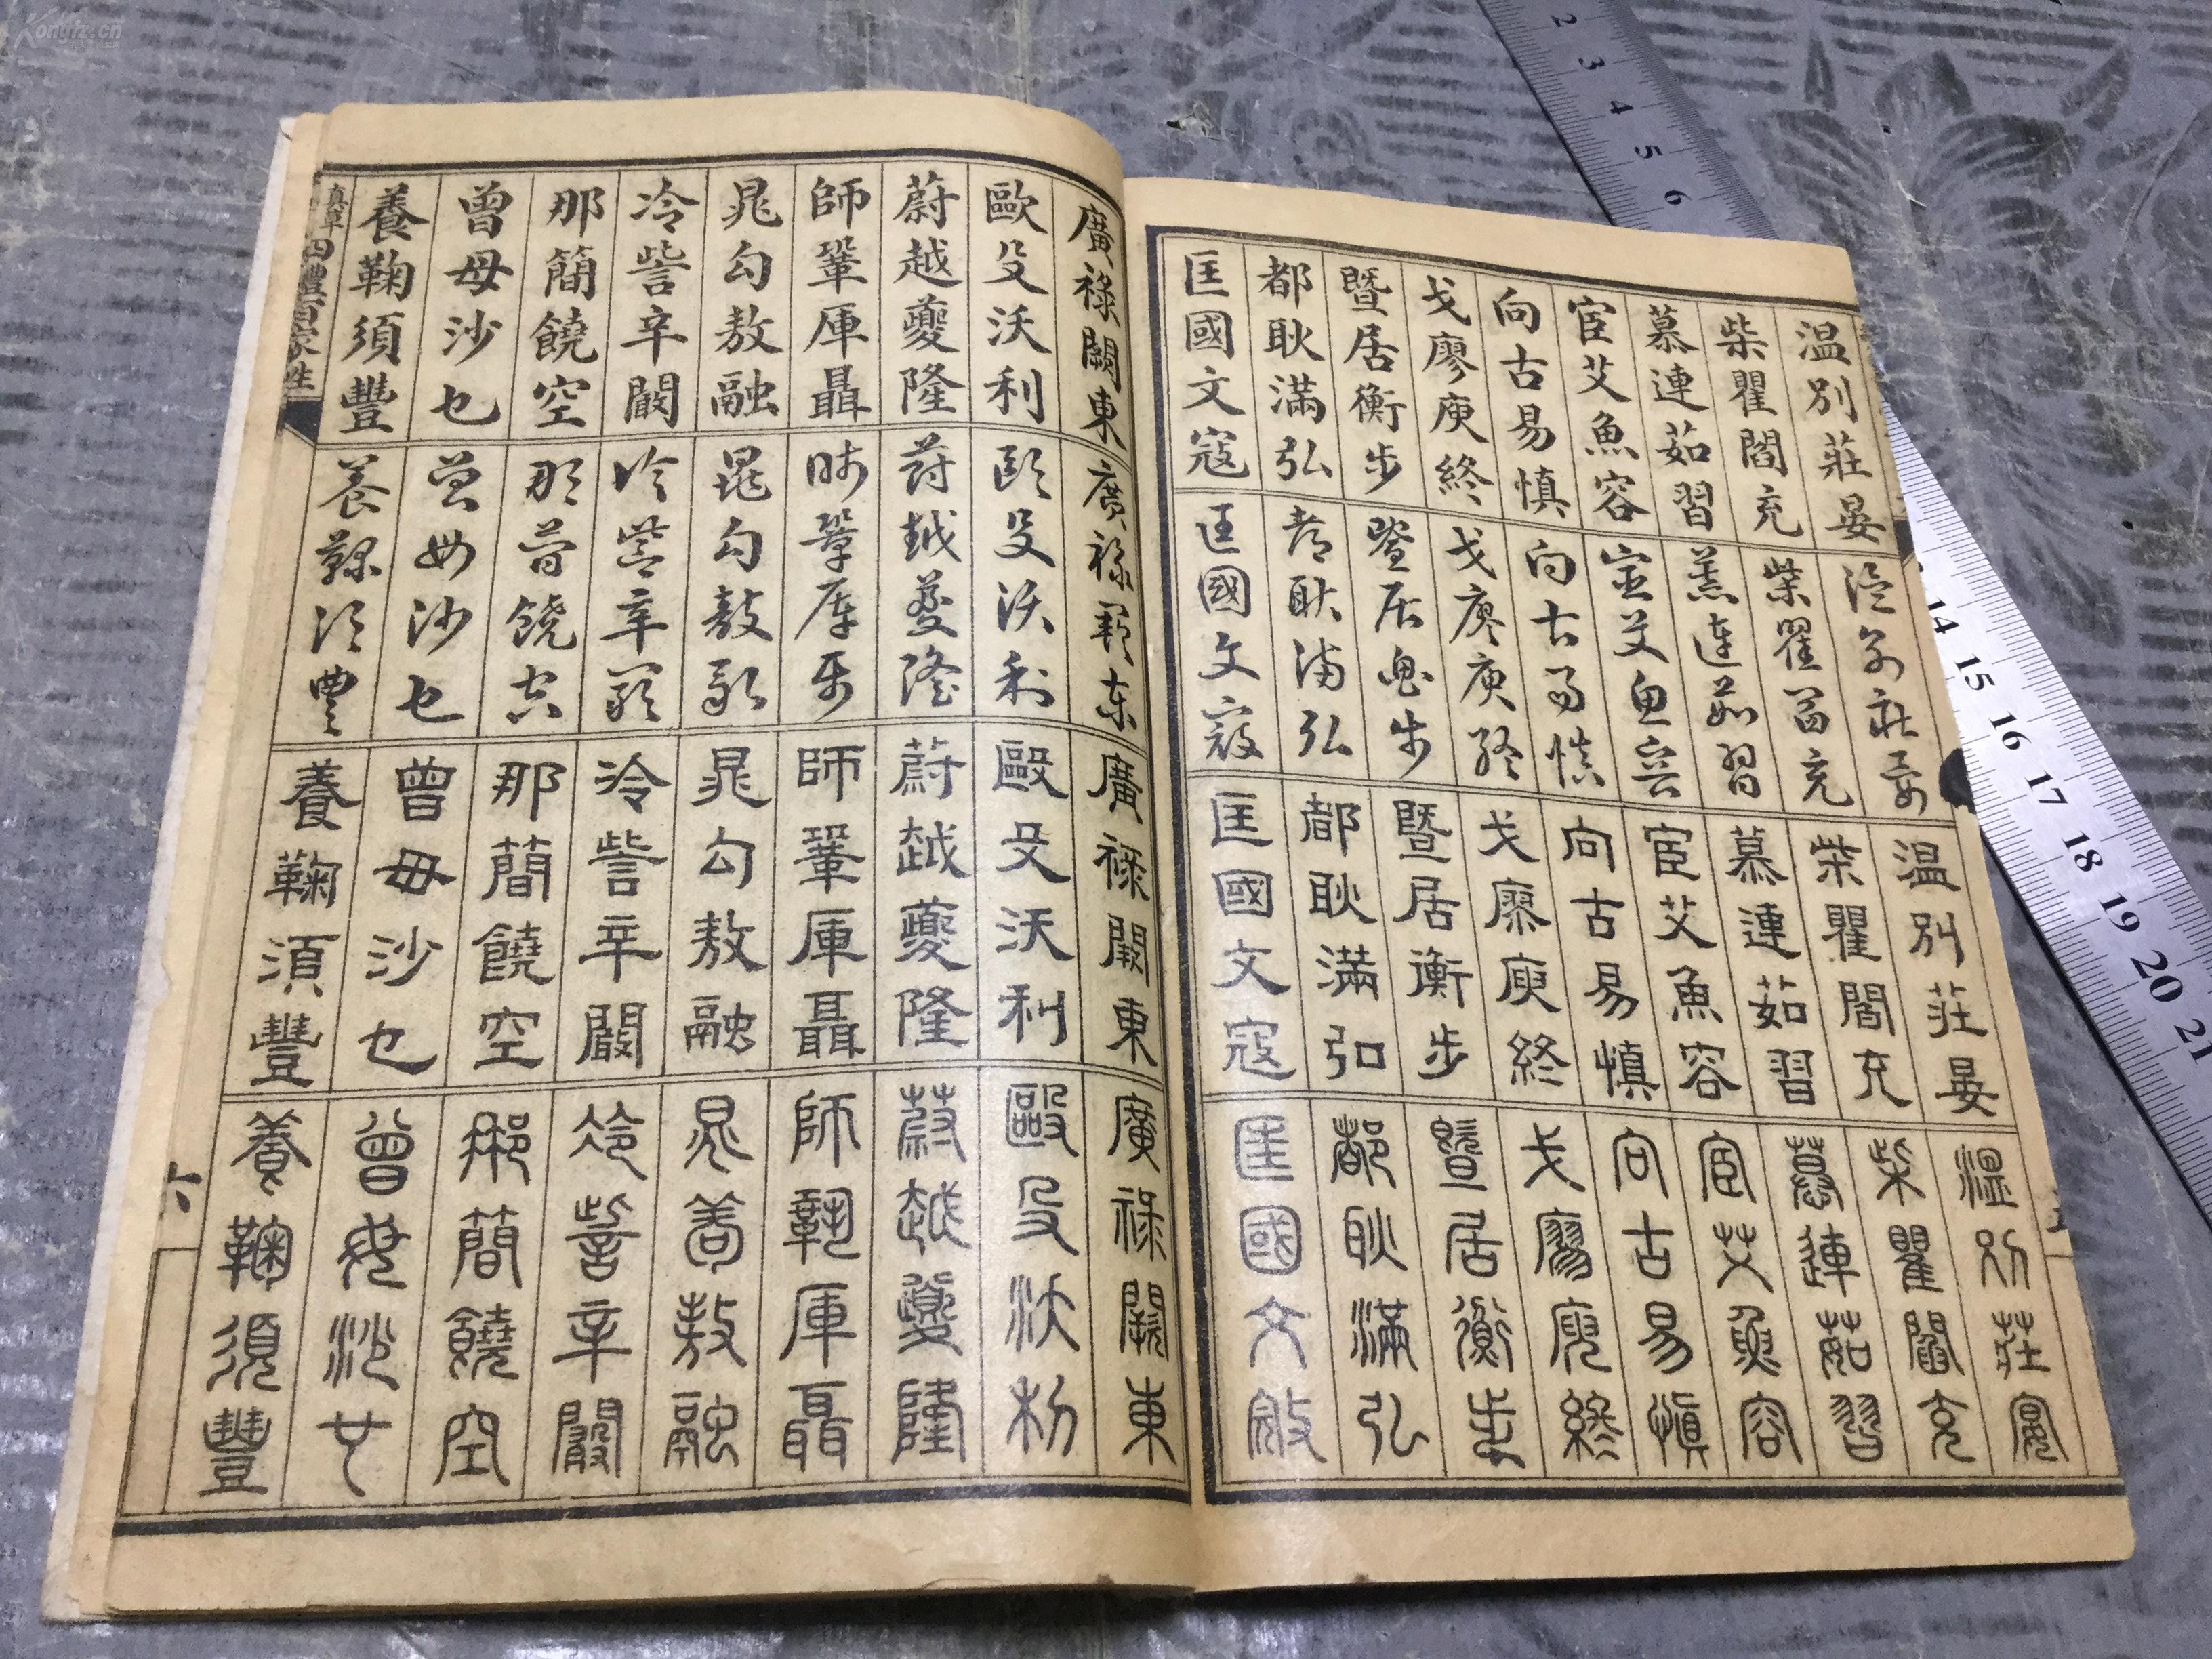 温別莊晏
柴瞿閻充
慕連茹習
宦艾魚容
向古易慎
戈廖庾終
暨居衡步
都耿滿弘
匡國文寇
温別莊晏
柴瞿閻充
慕連茹習
宦艾魚容
向古易慎
戈廖庾終
暨居衡步
都耿滿弘
匡國文寇
温別莊晏
柴瞿閻充
慕連茹習
宦艾魚容
向古易慎
戈廖庾終
暨居衡步
都耿滿弘
匡國文寇
温別莊晏
柴瞿閻充
慕連茹習
宦艾魚容
向古易慎
戈廖庾終
暨居衡步
都耿滿弘
匡國文寇
廣祿闕東
歐殳沃利
蔚越夔隆
師鞏厙聶
晁勾敖融
冷訾辛闞
那簡饒空
曾毋沙乜
養鞠須豐
廣祿闕東
歐殳沃利
蔚越夔隆
師鞏厙聶
晁勾敖融
冷訾辛闞
那簡饒空
曾毋沙乜
養鞠須豐
廣祿闕東
歐殳沃利
蔚越夔隆
師鞏厙聶
晁勾敖融
冷訾辛闞
那簡饒空
曾毋沙乜
養鞠須豐
廣祿闕東
歐殳沃利
蔚越夔隆
師鞏厙聶
晁勾敖融
冷訾辛闞
那簡饒空
曾毋沙乜
養鞠須豐
真草
四體百家姓
六
2 3 4 5 6
14 15 16 17 18 19 20 21
Kongfz.cn